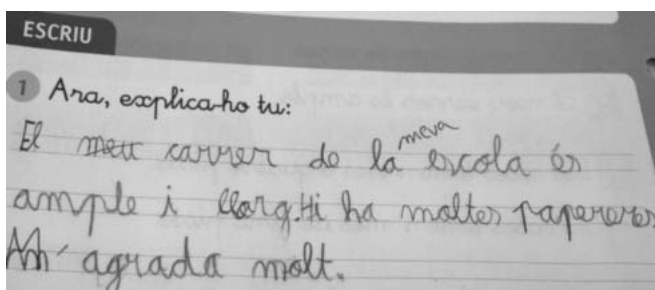 ESCRIU
1 Ara, explica-ho tu:
El meu carrer de la meva escola és
ample i llarg. Hi ha moltes papereres
M'agrada molt.